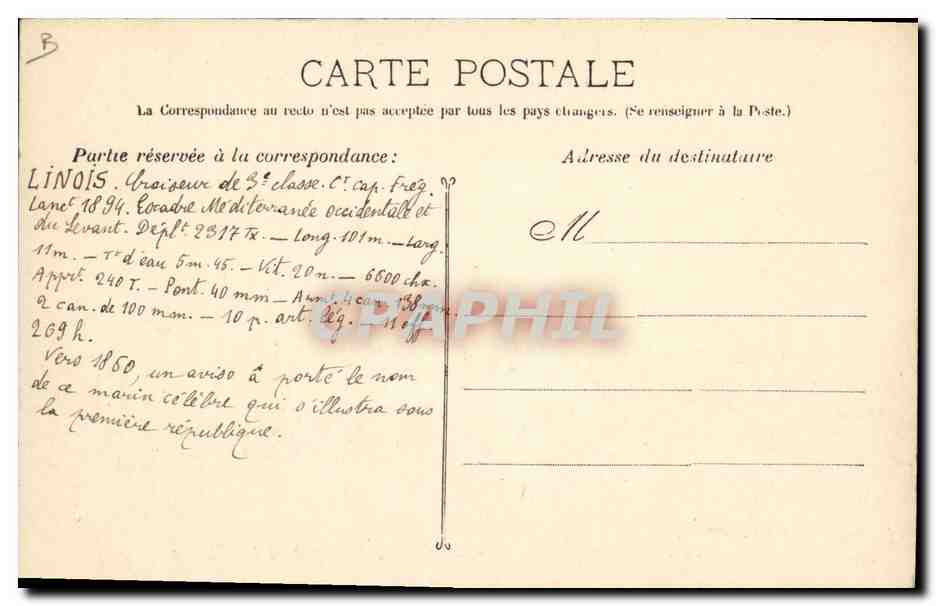 B
CARTE POSTALE
La Correspondance au recto n'est pas acceptée par tous les pays étrangers. (Se renseigner à la Poste.)
Partie réservée à la correspondance :
Adresse du destinataire
LINOIS. Croiseur de 3e classe. Ct Cap. Frég.
Lanct 1894. Escadre Méditerranée occidentale et
du Levant. Déplt 2317 Tx. — Long. 101m. — Larg.
11m. — Tt d'eau 5m.45. — Vit. 20n. — 6600 chx.
Apprt. 240 T. — Pont. 40 mm — Armt. 4 can. 138 mm.
2 can. de 100 mm. — 10 p. art. lég. — 11 off
269 h.
Vers 1860, un aviso a porté le nom
de ce marin célèbre qui s'illustra sous
la première république.
M
CPAPHIL